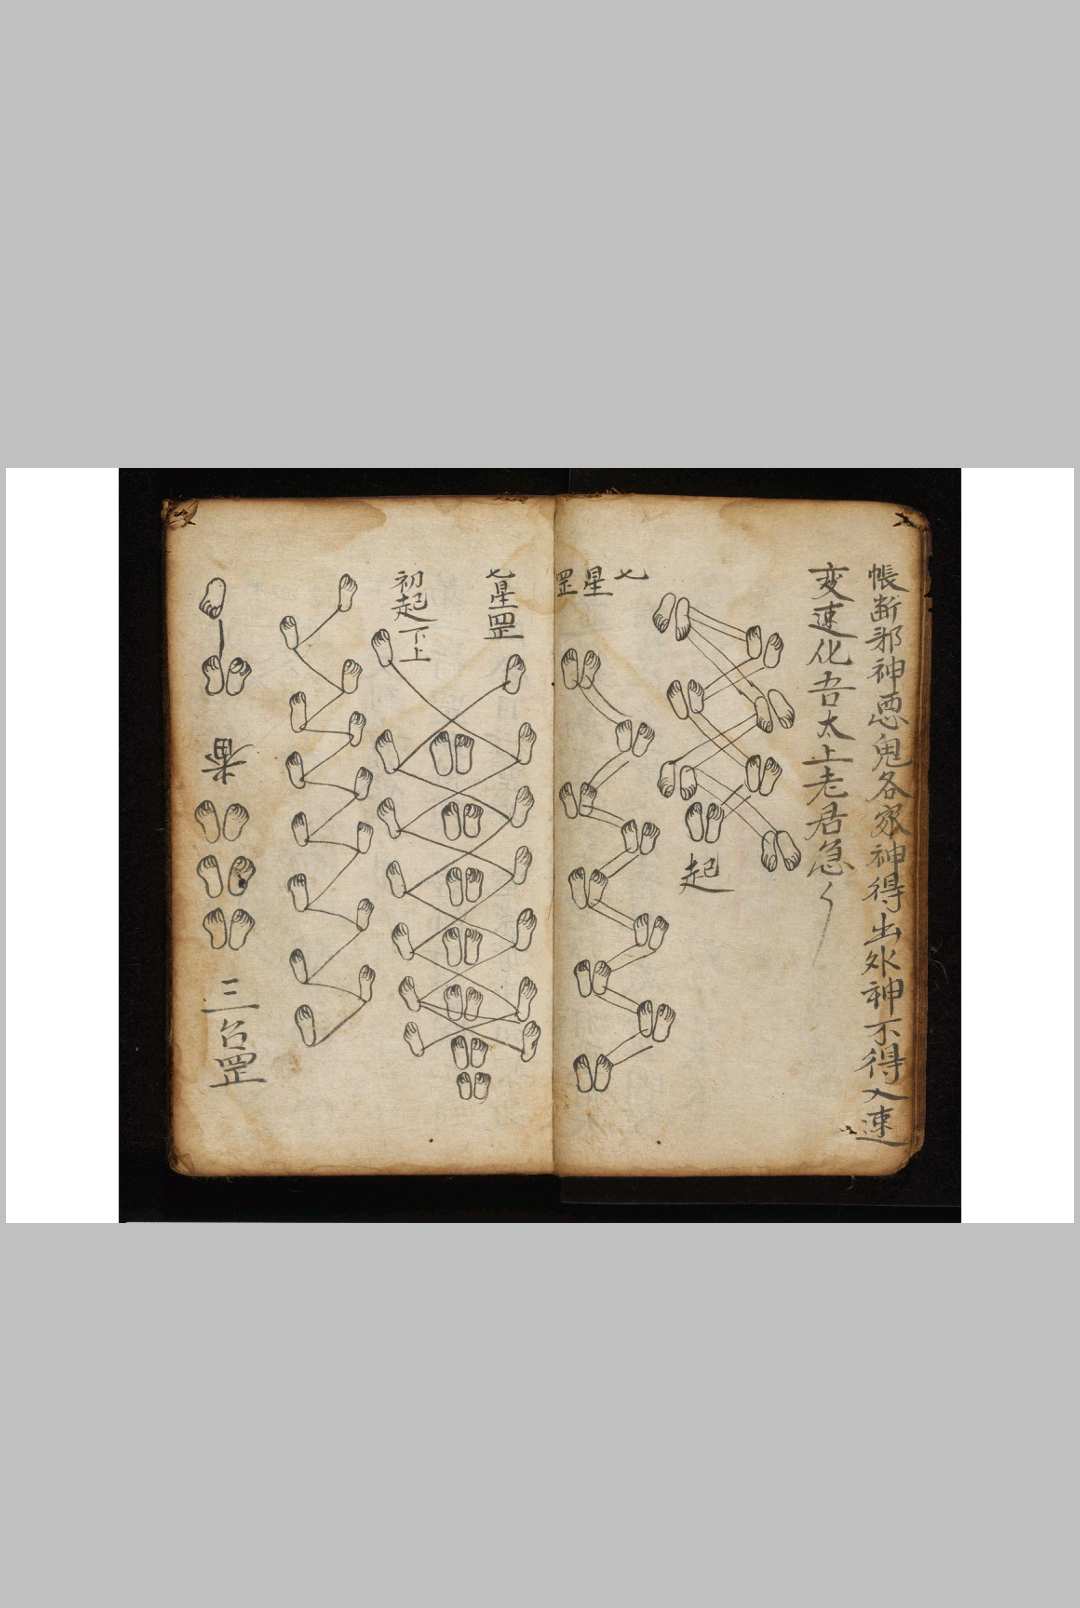 帳断邪神悪鬼各家神得出外神不得入速
変速化吾太上老君急く
起
七星罡
七星罡
初起下上
三台罡